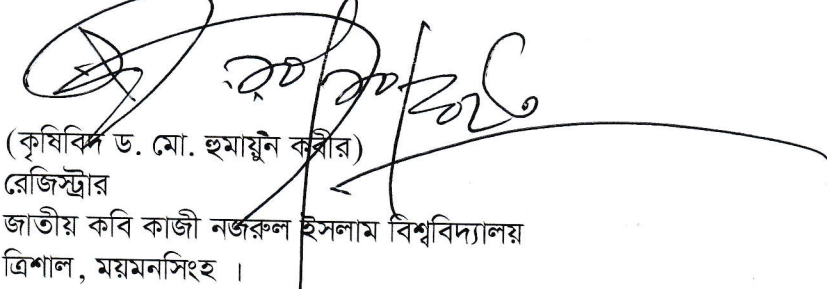 (কৃষিবিদ ড. মো. হুমায়ুন কবীর)
রেজিস্ট্রার
জাতীয় কবি কাজী নজরুল ইসলাম বিশ্ববিদ্যালয়
ত্রিশাল, ময়মনসিংহ ।